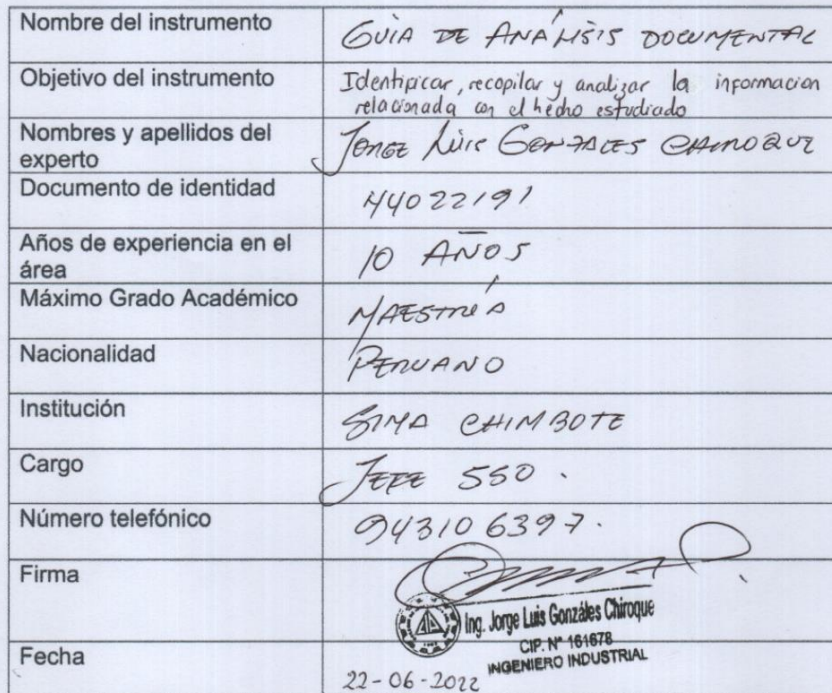 Nombre del instrumento
GUIA DE ANÁLISIS DOCUMENTAL
Objetivo del instrumento
Identificar, recopilar y analizar la informacion
relacionada con el hecho estudiado
Nombres y apellidos del
experto
JORGE LUIS GONZALES CHIROQUE
Documento de identidad
44022191
Años de experiencia en el
área
10 AÑOS
Máximo Grado Académico
MAESTRÍA
Nacionalidad
PERUANO
Institución
SIMA CHIMBOTE
Cargo
JEFE SSO.
Número telefónico
943106397.
Firma
Ing. Jorge Luis Gonzáles Chiroque
CIP. N° 161678
INGENIERO INDUSTRIAL
Fecha
22-06-2022